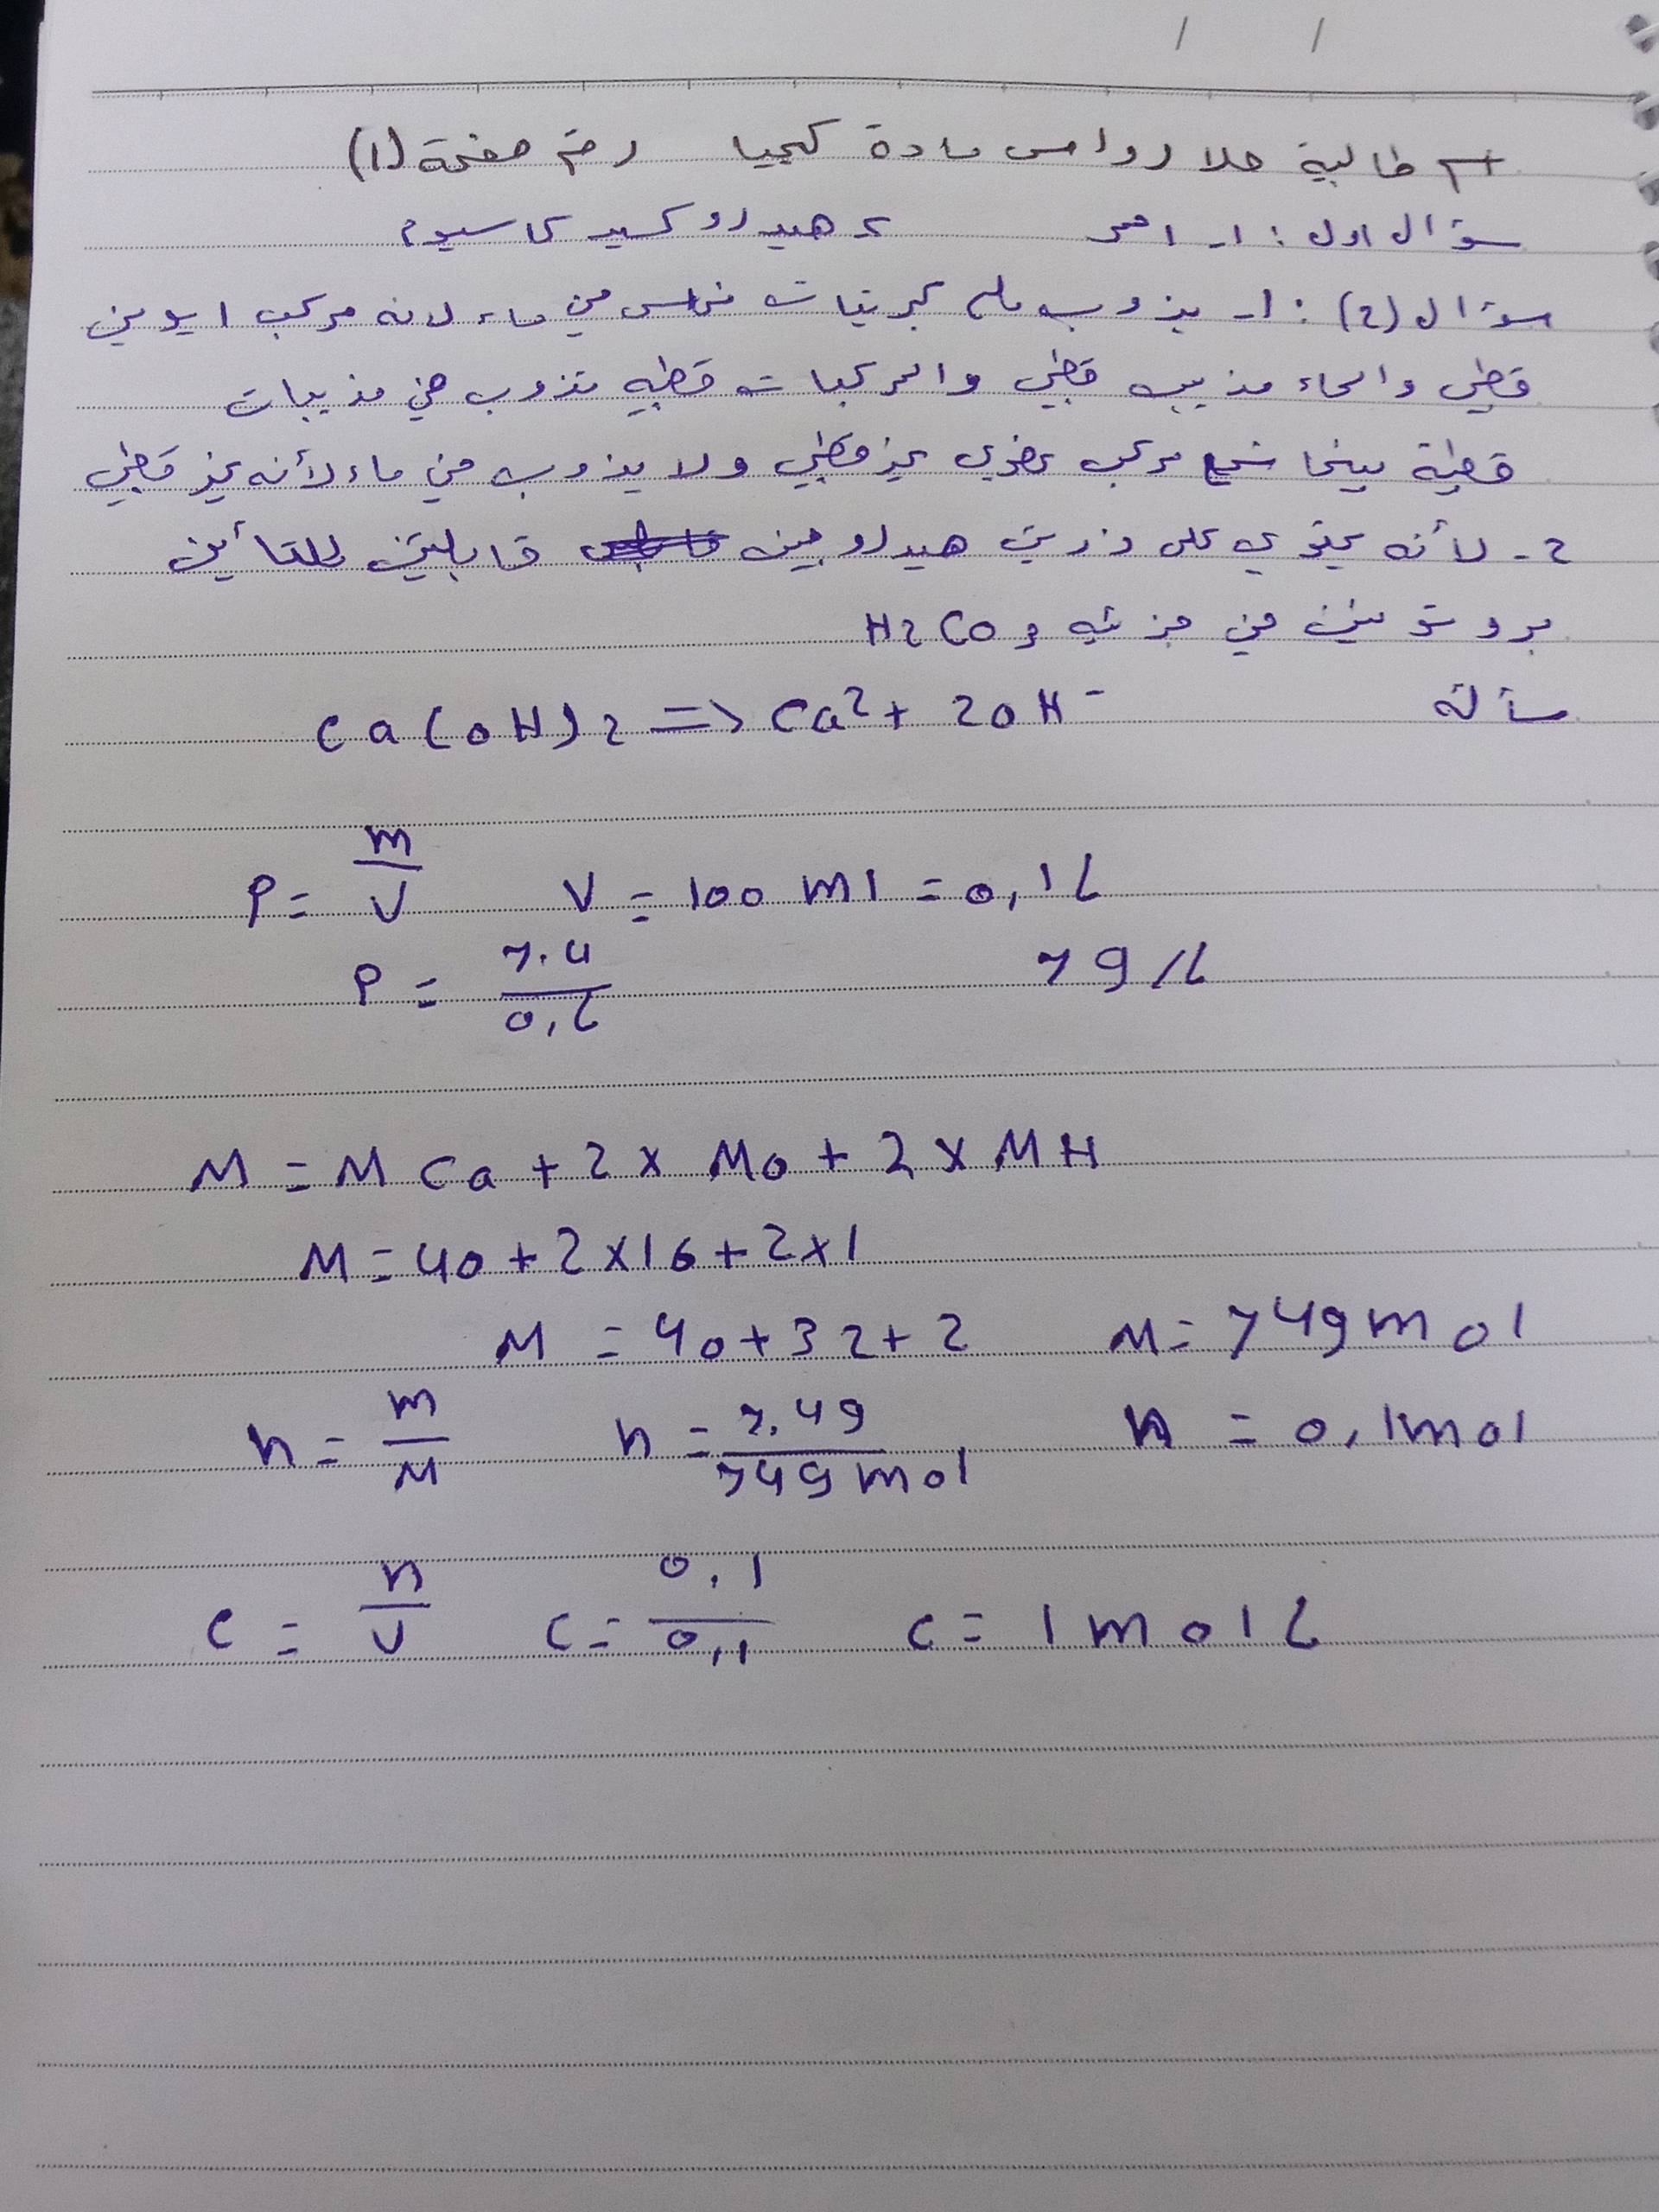 اسم طالبة حلا رواس مادة كيميا رقم صفحة (1)
سؤال اول : 1ـ احمر 2 هيدروكسيد كالسيوم
سؤال (2) : 1ـ يذوب ملح كبريتات نحاس في ماء لانه مركب ايوني
قطبي والماء مذيب قطبي والمركبات قطبيه تذوب في مذيبات
قطبية بينما شمع مركب عضوي غير قطبي ولا يذوب في ماء لأنه غير قطبي
2ـ لأنه يحتوي على ذرتي هيدروجين قابلتين للتأين
بروتونين في جزيئه H2CO3
مسألة Ca(OH)2 => Ca2+ 2OH-
P = m/V V = 100 ml = 0,1L
P = 7.4/0,1 7 g/L
M = M Ca + 2 x Mo + 2 x MH
M = 40 + 2x16 + 2x1
M = 40+32+2 M = 74g mol
n = m/M n = 7.4g/74g mol n = 0,1mol
C = n/V C = 0,1/0,1 C = 1 mol L